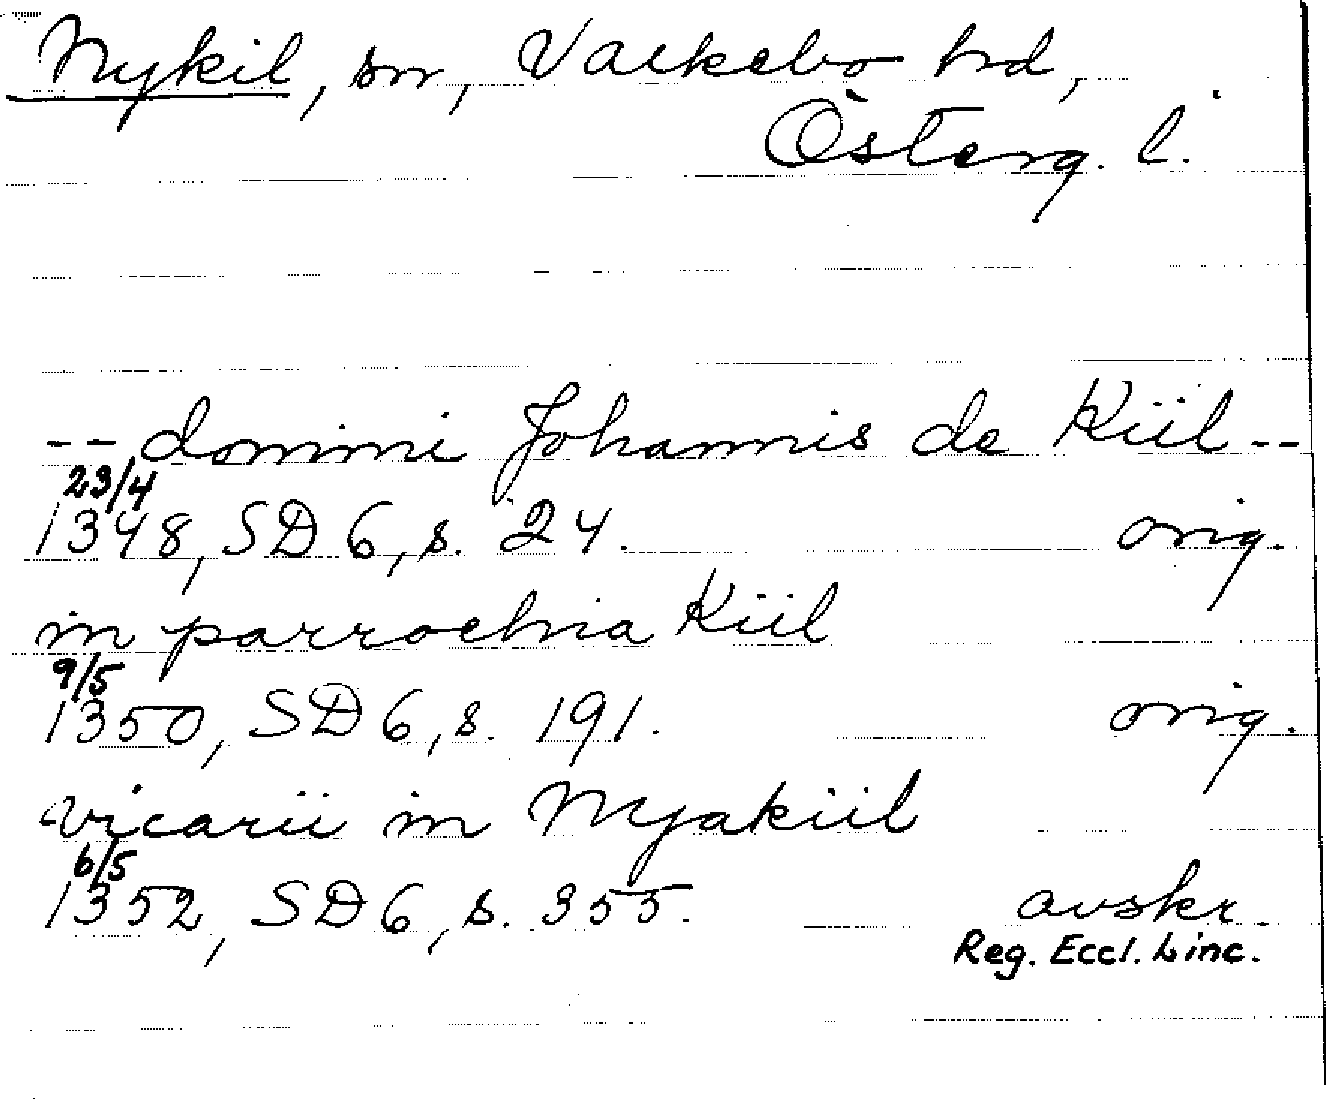 Nykil, sn, Valkebo hd,
Österg. l.
-- domini Johannis de Kiil --
23/4
1348, SD 6, s. 24. orig.
in parrochia Kiil
9/5
1350, SD 6, s. 191. orig.
vicarii in Nyakiil
6/5
1352, SD 6, s. 355. avskr.
Reg. Eccl. Linc.